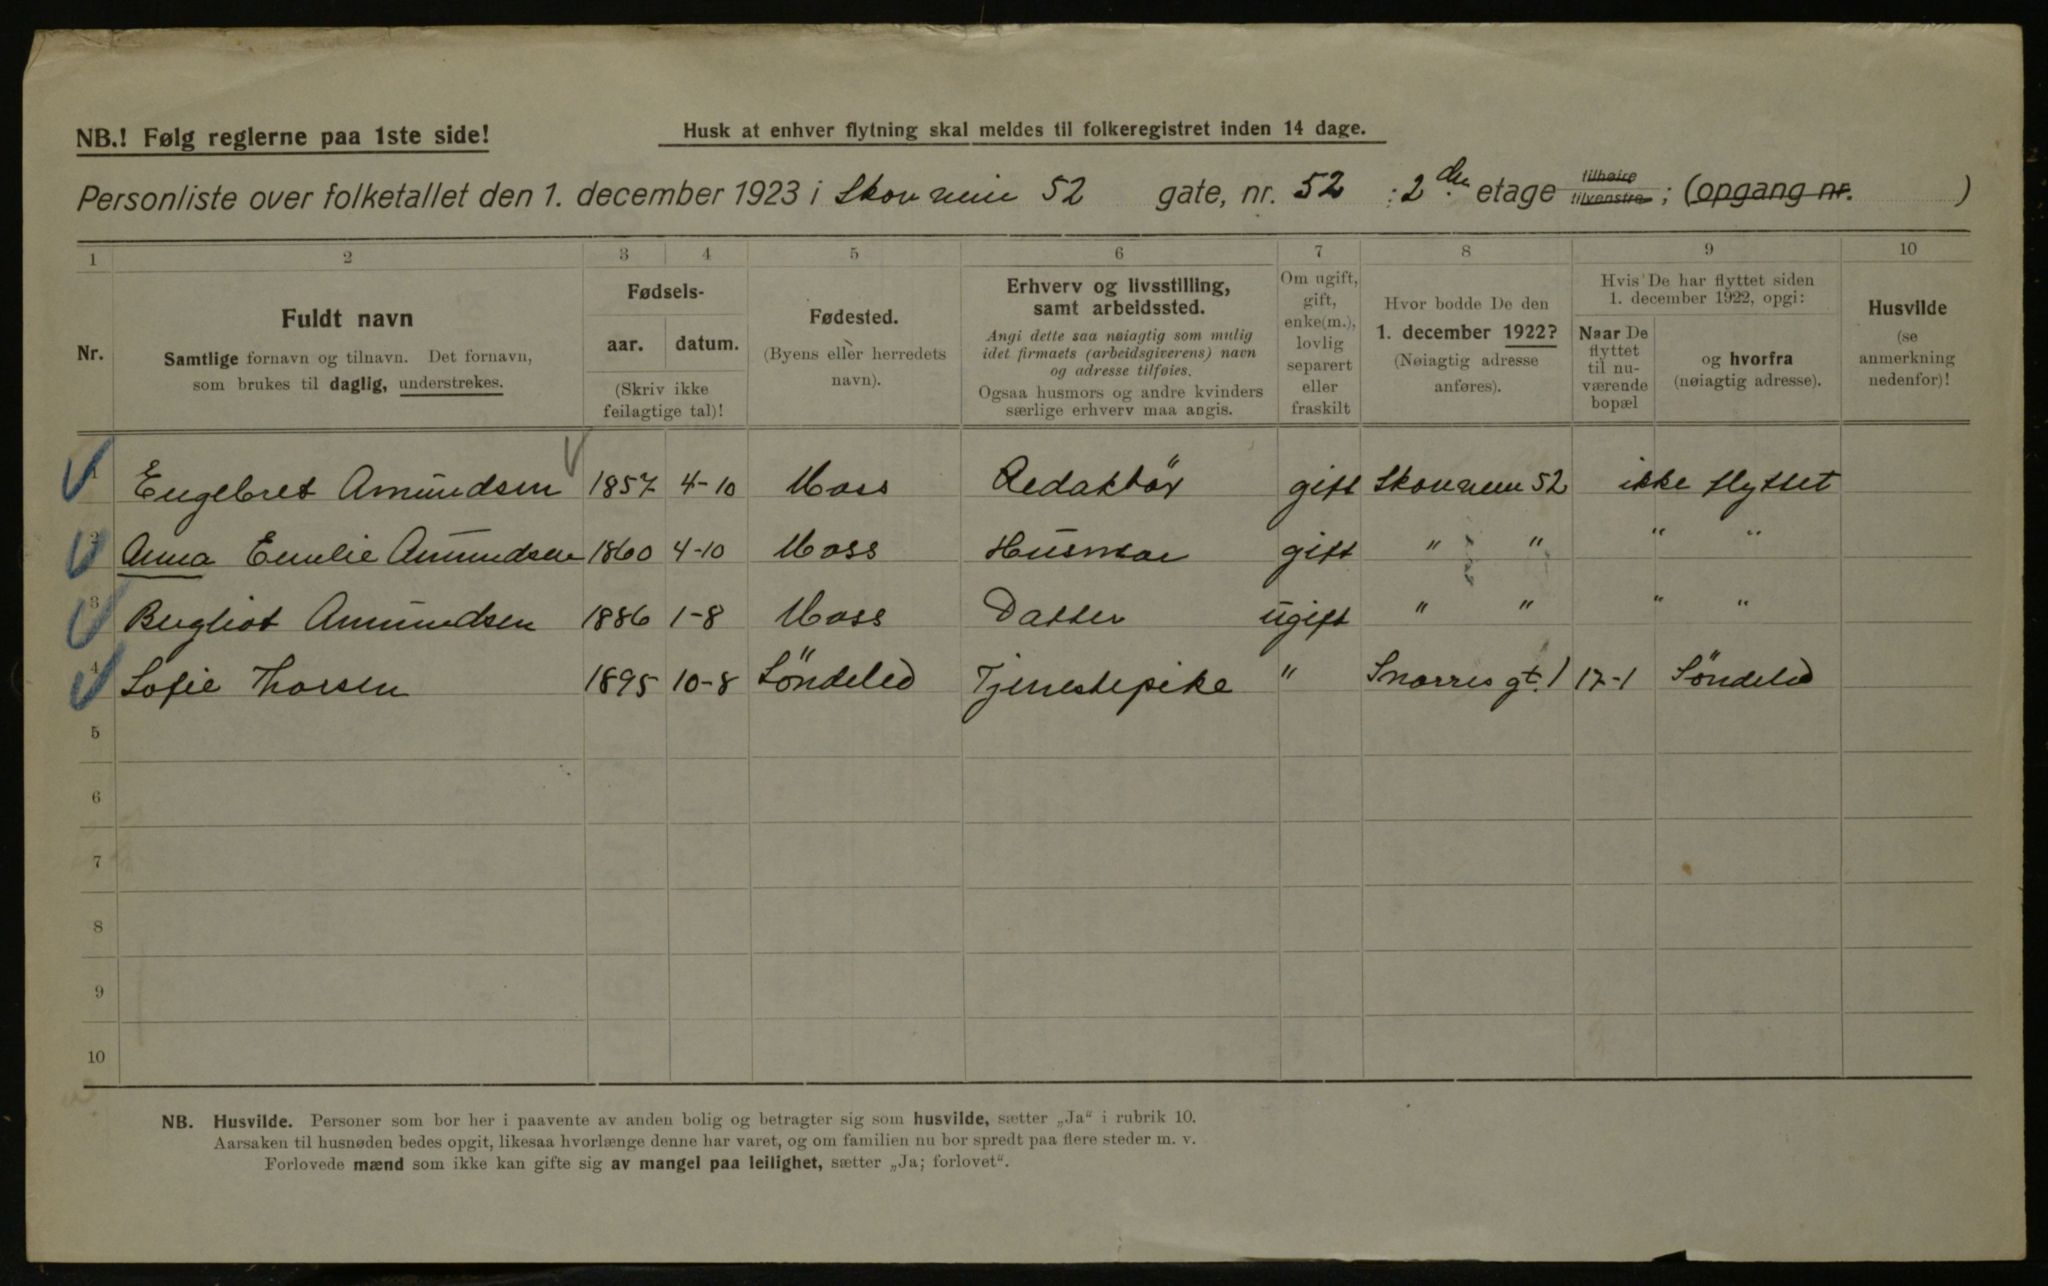 NB.! Følg reglerne paa 1ste side!
Husk at enhver flytning skal meldes til folkeregistret inden 14 dage.
Personliste over folketallet den 1. december 1923 i Skovveien 52 gate, nr. 52 : 2den etage tilhøire tilvenstre; (opgang nr. )
1 2 3 4 5 6 7 8 9 10
Nr.
Fuldt navn
Samtlige fornavn og tilnavn. Det fornavn,
som brukes til daglig, understrekes.
Fødsels-
aar. datum.
(Skriv ikke
feilagtige tal)!
Fødested.
(Byens eller herredets
navn).
Erhverv og livsstilling,
samt arbeidssted.
Angi dette saa nøiagtig som mulig
idet firmaets (arbeidsgiverens) navn
og adresse tilføies.
Ogsaa husmors og andre kvinders
særlige erhverv maa angis.
Om ugift,
gift,
enke(m.),
lovlig
separert
eller
fraskilt
Hvor bodde De den
1. december 1922?
(Nøiagtig adresse
anføres).
Hvis De har flyttet siden
1. december 1922, opgi:
Naar De
flyttet
til nu-
værende
bopæl
og hvorfra
(nøiagtig adresse).
Husvilde
(se
anmerkning
nedenfor)!
1 Engebret Amundsen 1857 4-10 Moss Redaktör gift Skovveien 52 ikke flyttet
2 Anna Emelie Amundsen 1860 4-10 Moss Husmor gift " " " "
3 Bergliot Amundsen 1886 1-8 Moss Datter ugift " " " "
4 Sofie Thorsen 1895 10-8 Söndeled Tjenestepike " Snorres gt. 1 17-1 Söndeled
5
6
7
8
9
10
NB. Husvilde. Personer som bor her i paavente av anden bolig og betragter sig som husvilde, sætter „Ja“ i rubrik 10.
Aarsaken til husnøden bedes opgit, likesaa hvorlænge denne har varet, og om familien nu bor spredt paa flere steder m. v.
Forlovede mænd som ikke kan gifte sig av mangel paa leilighet, sætter „Ja; forlovet“.